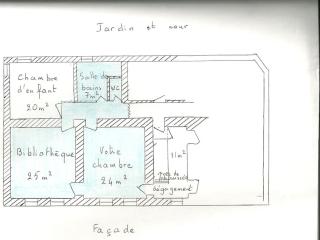 Jardin et cour
Chambre
d'enfant
20m²
Salle de
bains
7m²
WC
Bibliothèque
25m²
Votre
chambre
24m²
11m²
dégagement
Façade